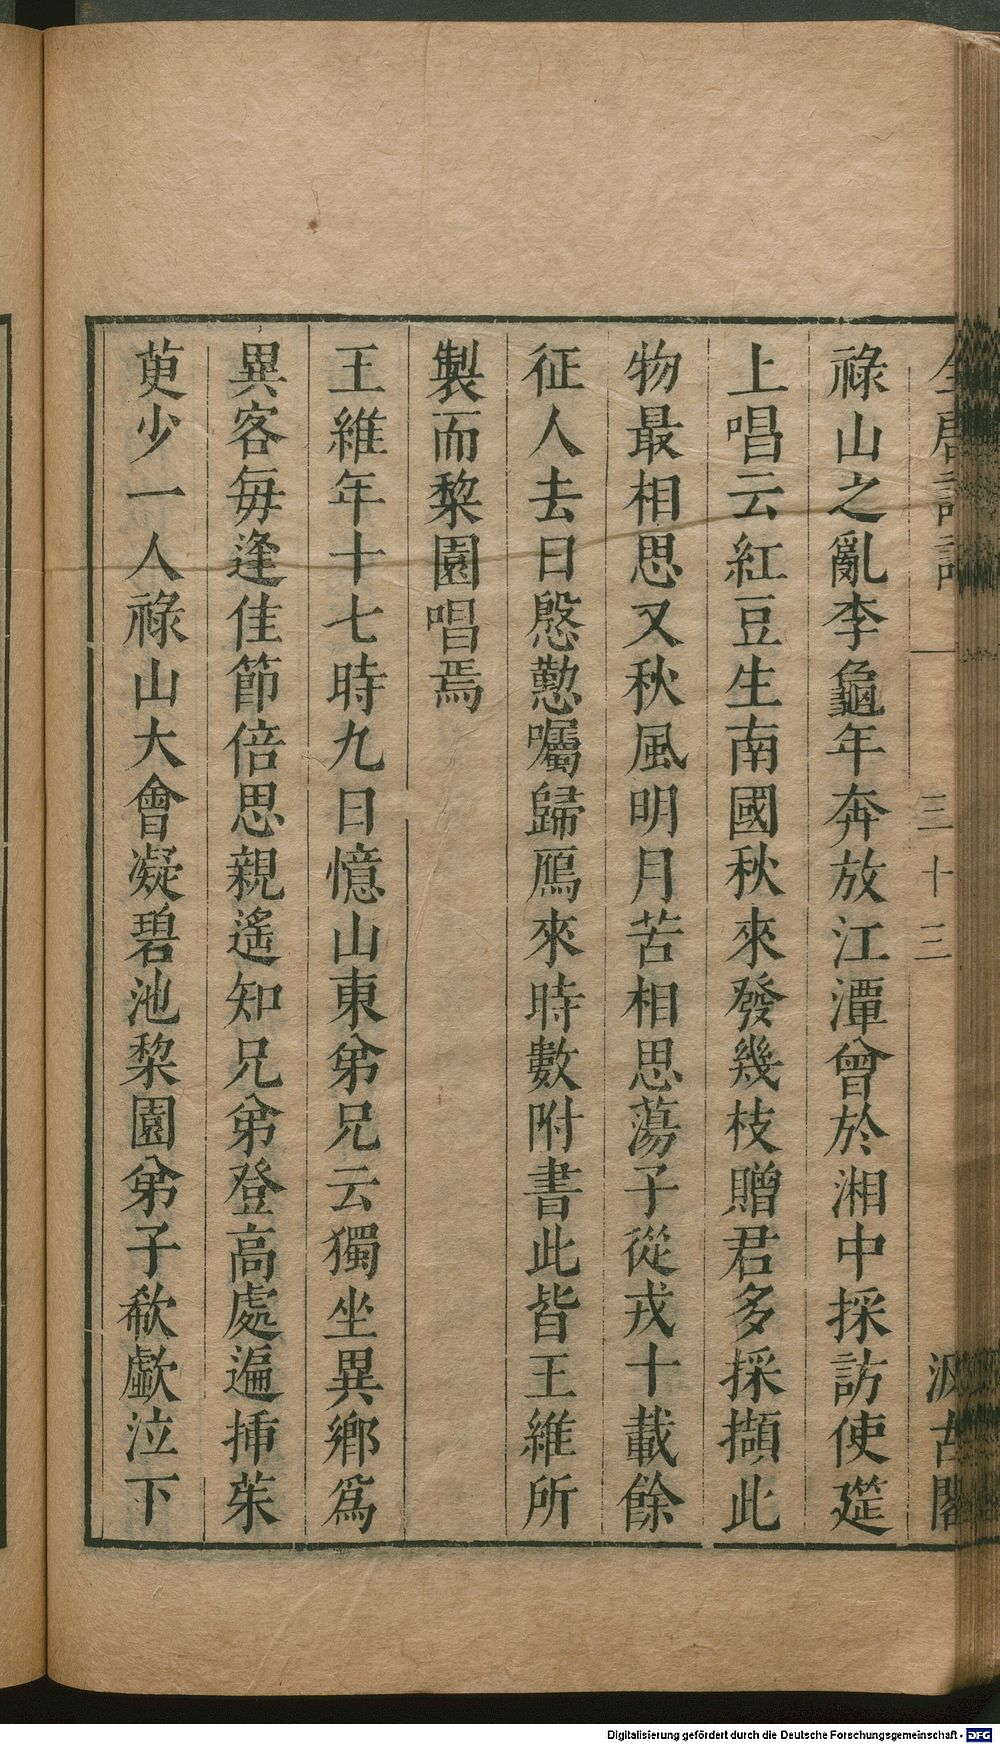 全唐詩話 三十三 汲古閣
祿山之亂李龜年奔放江潭曾於湘中採訪使筵
上唱云紅豆生南國秋來發幾枝贈君多採擷此
物最相思又秋風明月苦相思蕩子從戎十載餘
征人去日慇懃囑歸鴈來時數附書此皆王維所
製而棃園唱焉
王維年十七時九日憶山東弟兄云獨坐異鄉爲
異客每逢佳節倍思親遙知兄弟登高處遍揷茱
萸少一人祿山大會凝碧池棃園弟子欷歔泣下
Digitalisierung gefördert durch die Deutsche Forschungsgemeinschaft - DFG